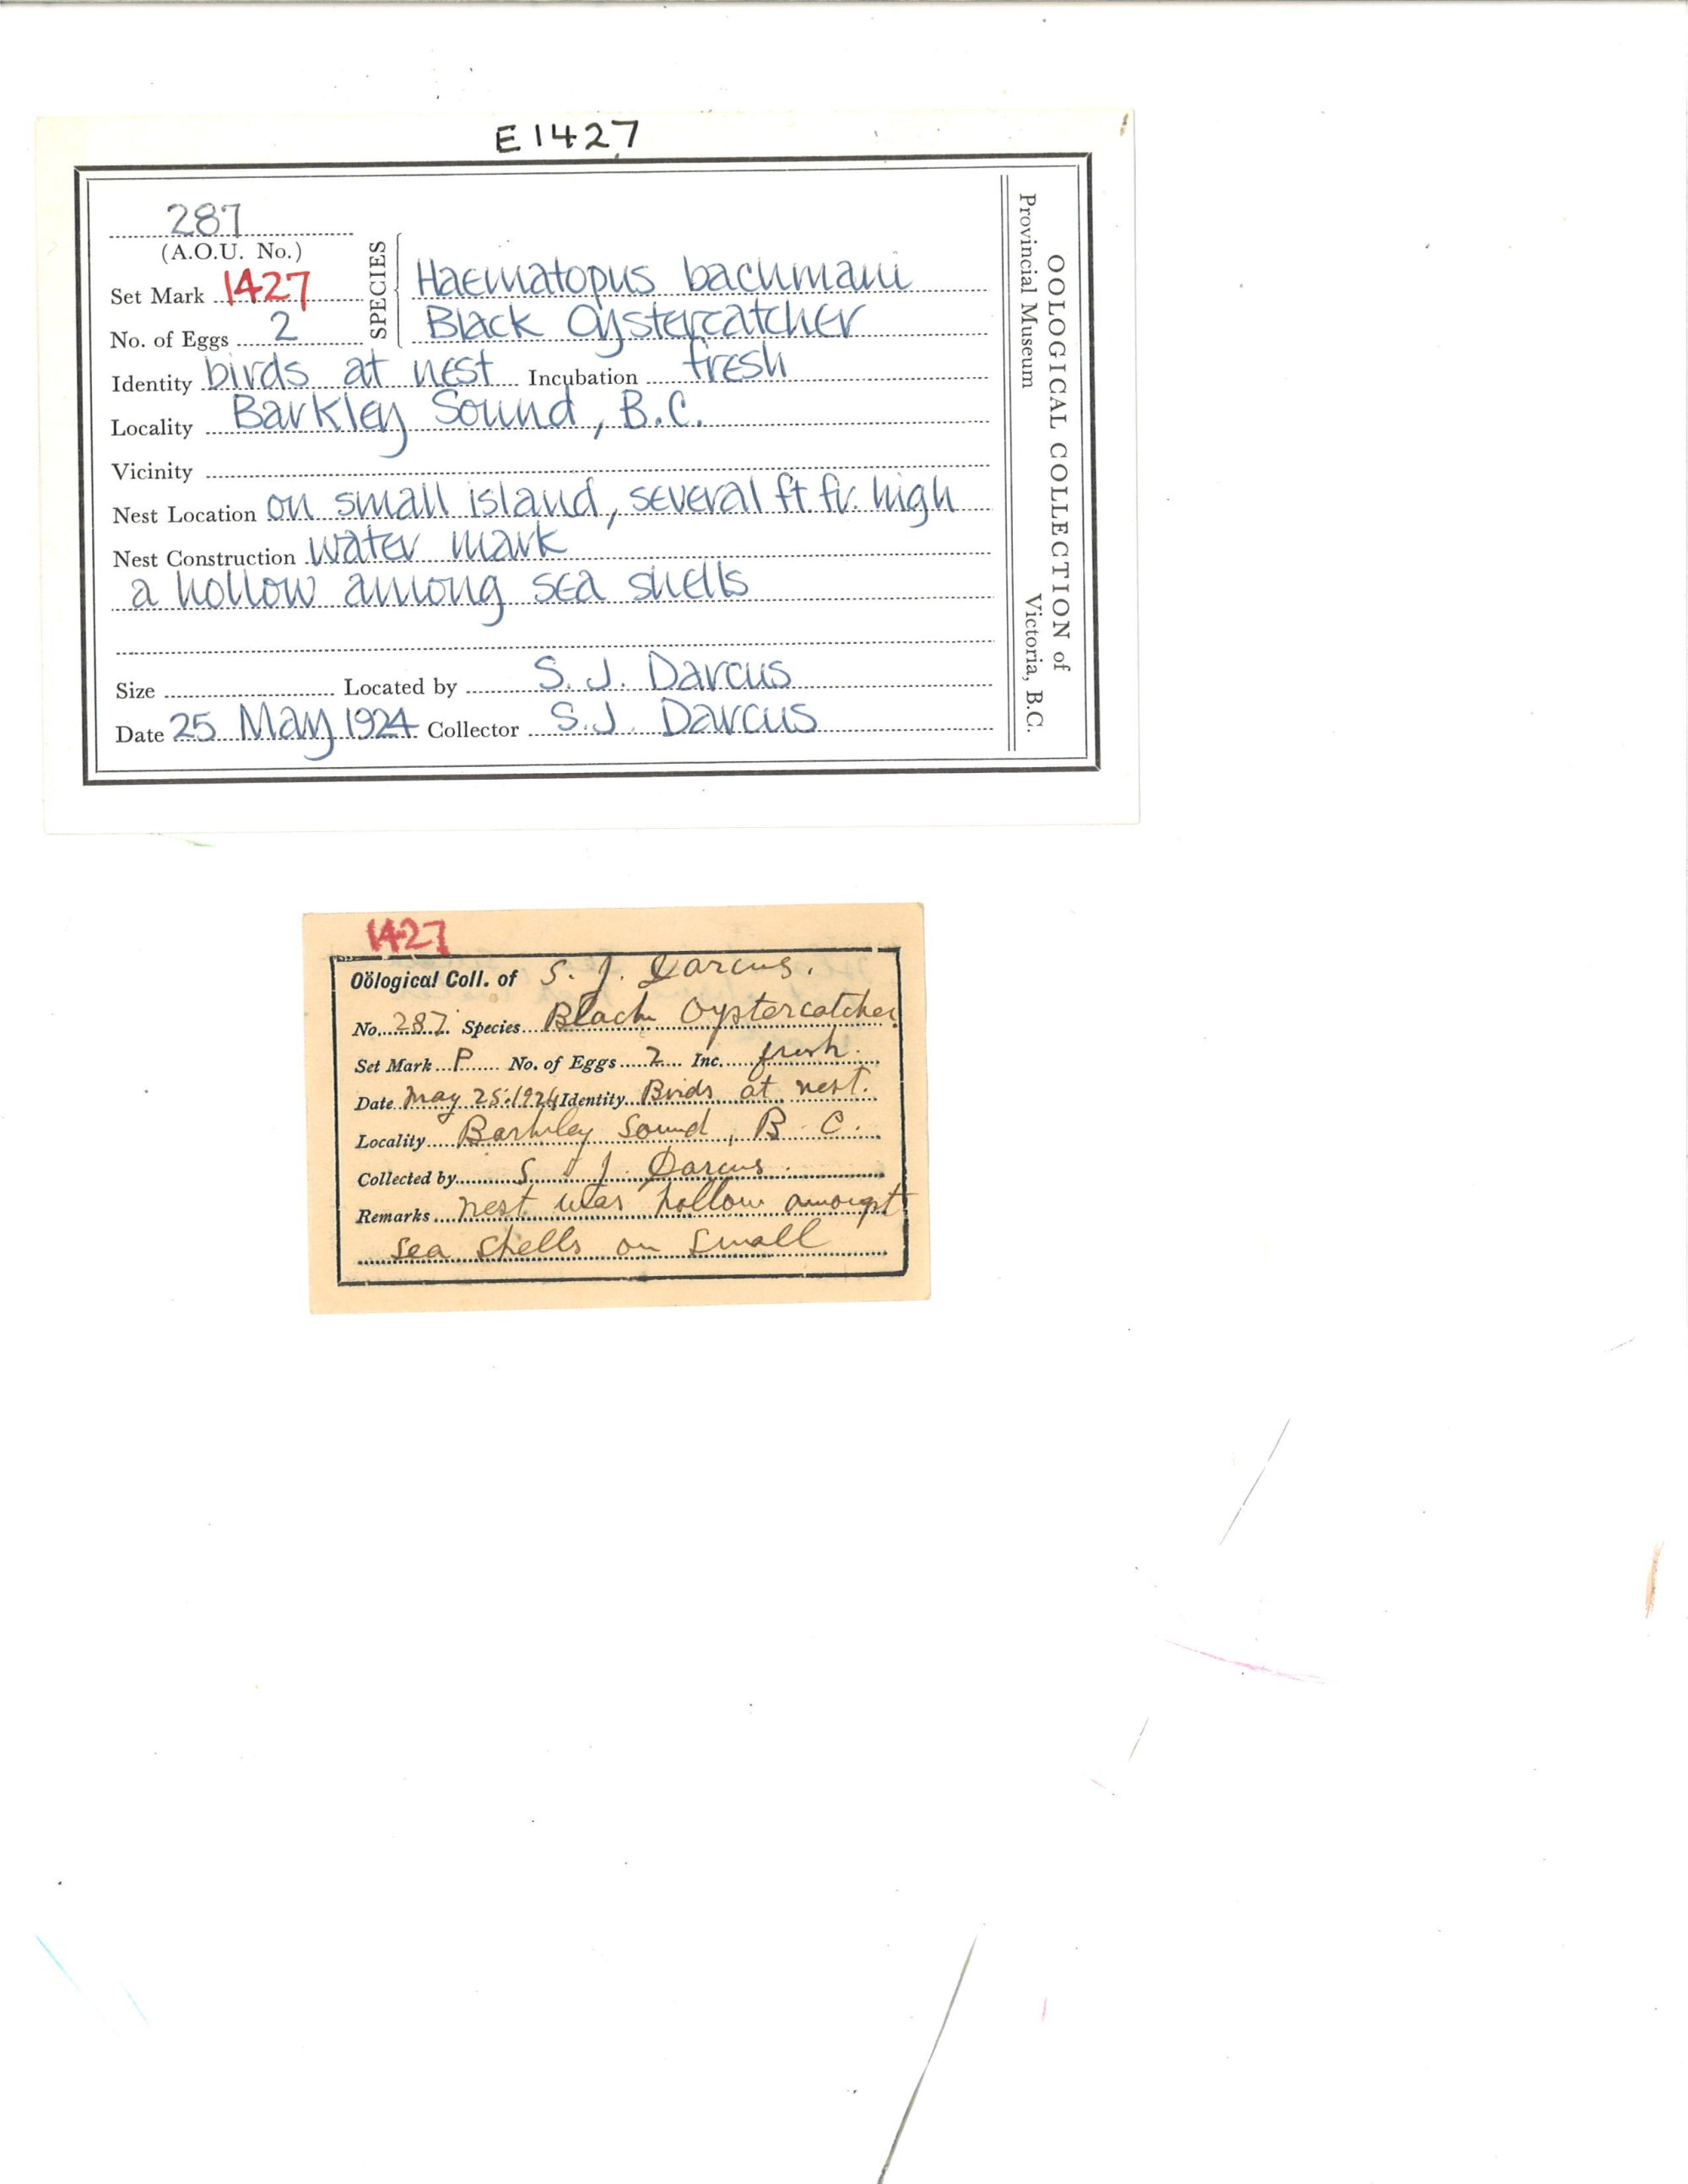 E1427
287
(A.O.U. No.)
Set Mark 1427
No. of Eggs 2
SPECIES
Haematopus bachmani
Black Oystercatcher
Identity birds at nest Incubation fresh
Locality Barkley Sound, B.C.
Vicinity
Nest Location on small island, several ft. fr. high
Nest Construction water mark
a hollow among sea shells
Size Located by S. J. Darcus
Date 25 May 1924 Collector S. J. Darcus
OOLOGICAL COLLECTION of
Provincial Museum Victoria, B.C.
1427
Oölogical Coll. of S. J. Darcus.
No. 287. Species Black Oystercatcher
Set Mark P No. of Eggs 2 Inc. fresh.
Date May 25.1924 Identity Birds at nest.
Locality Barkley Sound, B. C.
Collected by S. J. Darcus.
Remarks nest was hollow amongst
sea shells on small